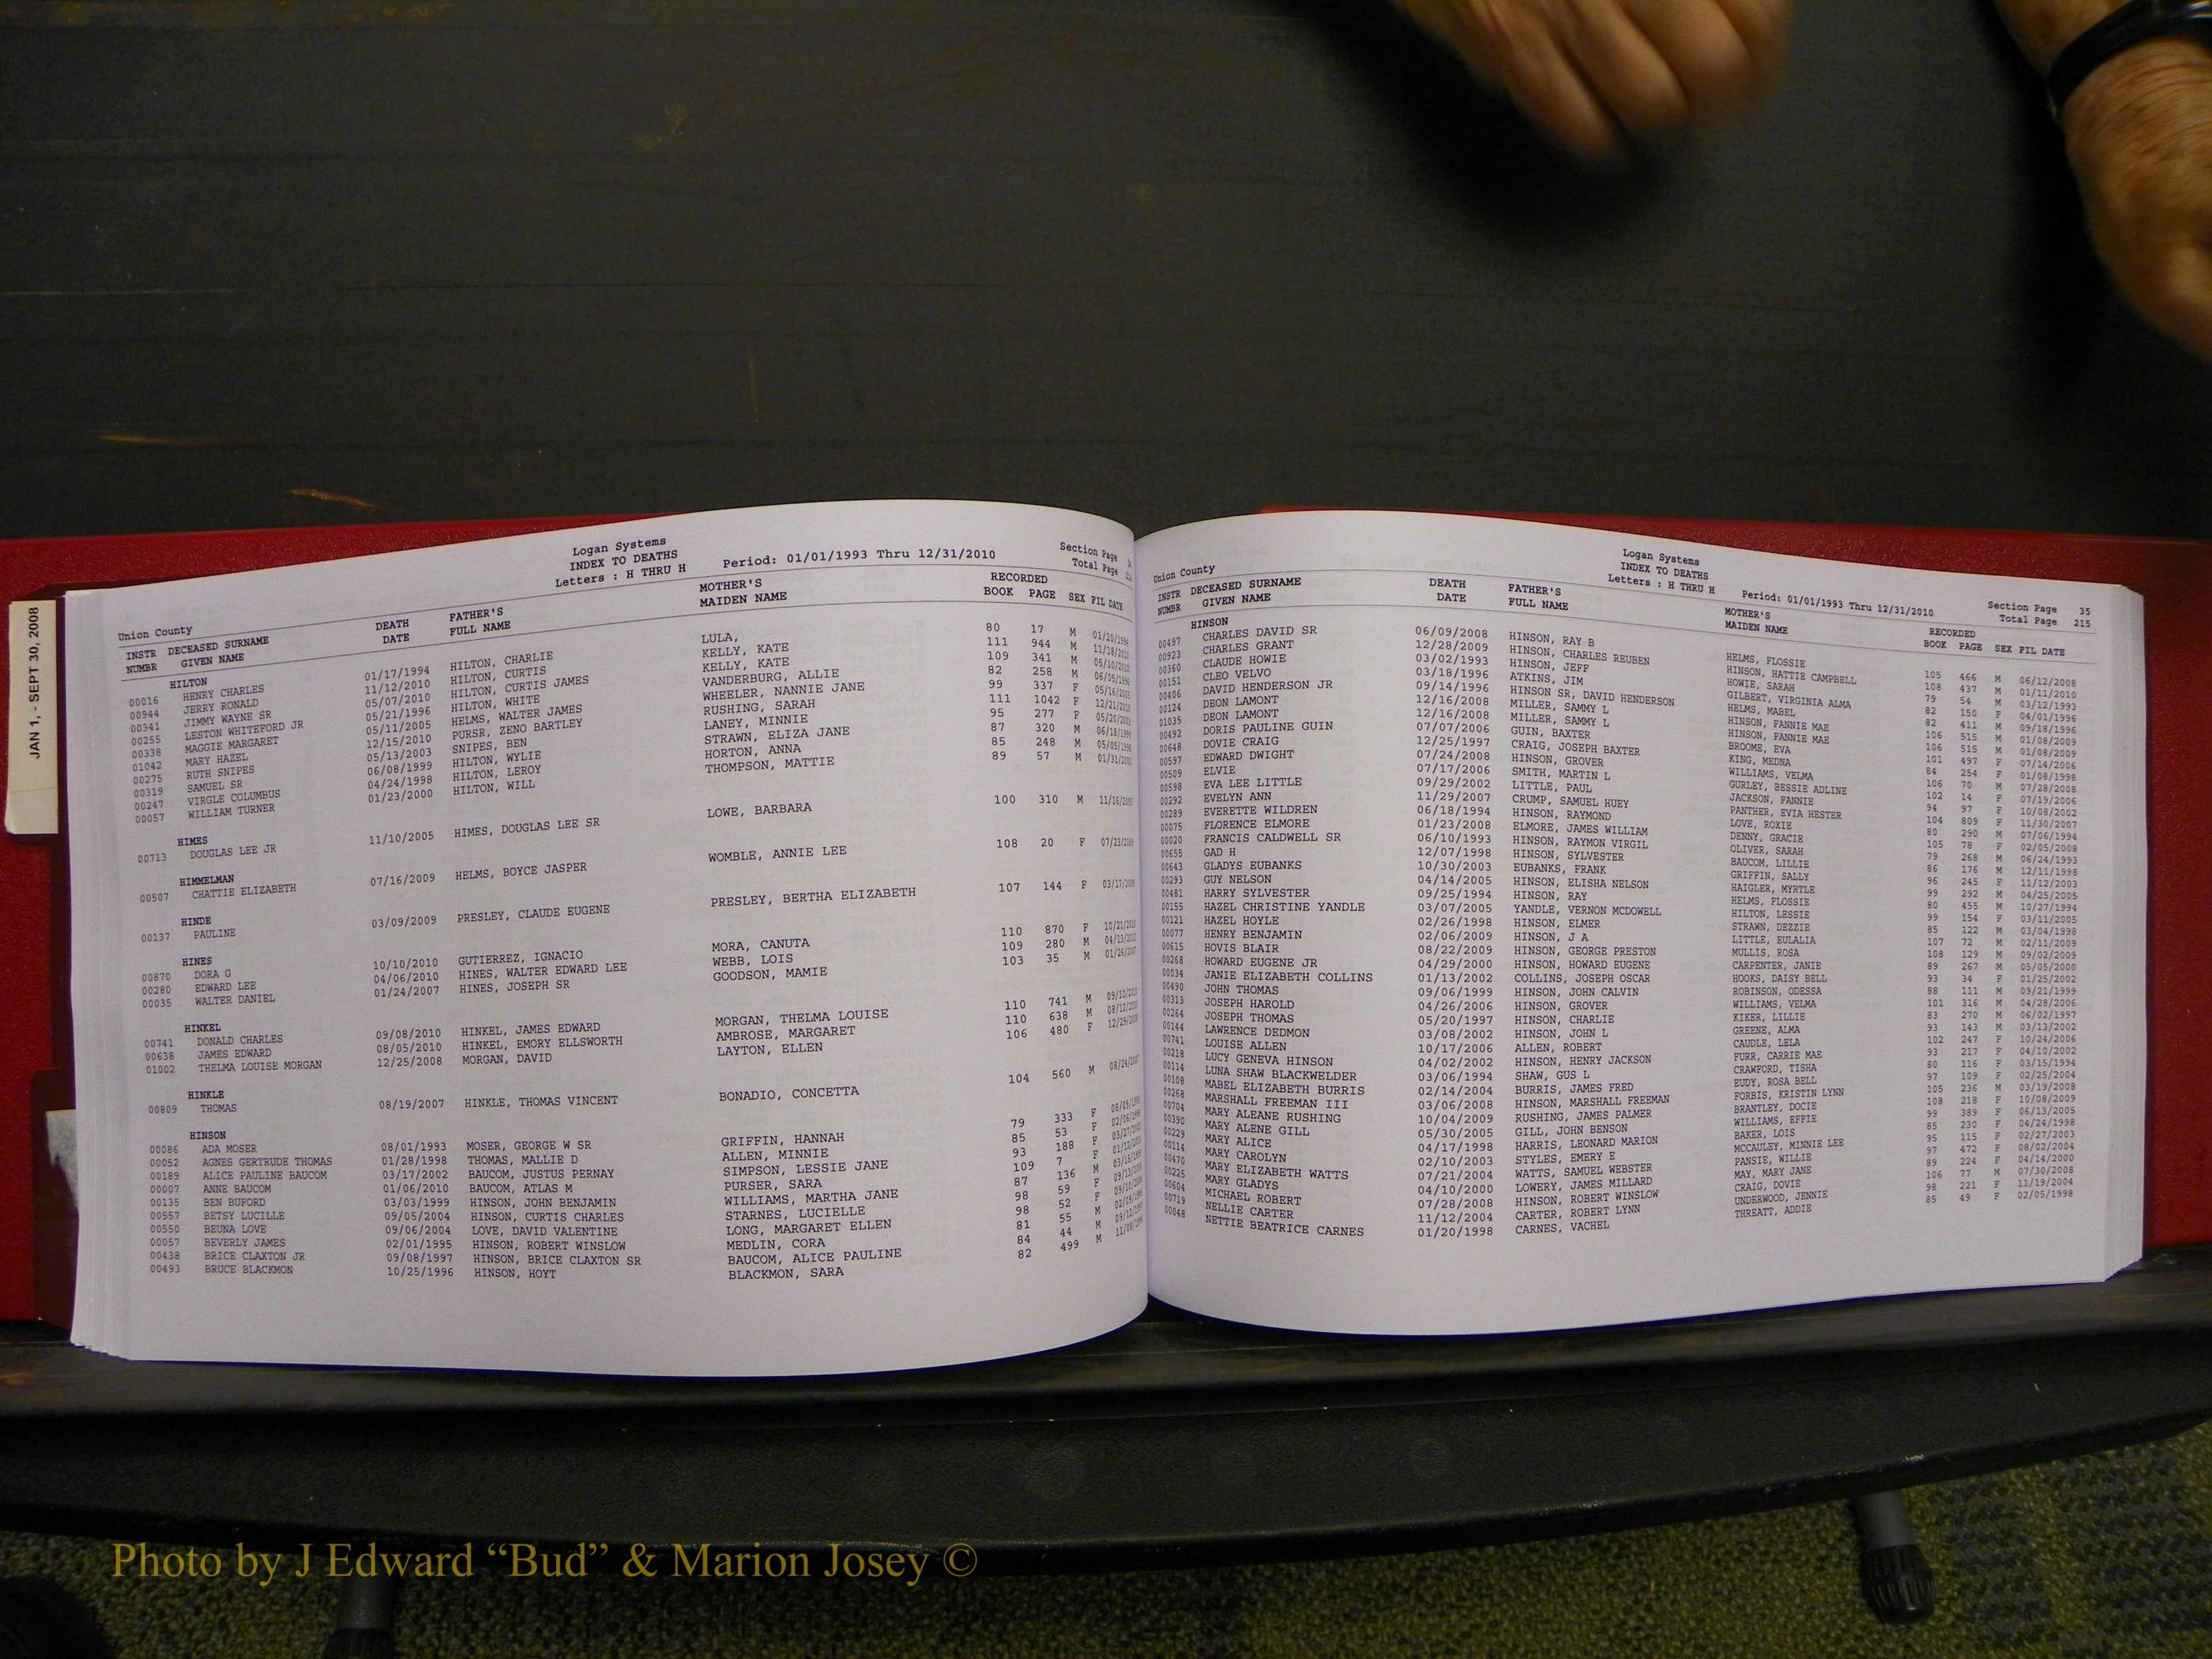 JAN 1, - SEPT 30, 2008
Logan Systems
INDEX TO DEATHS
Letters : H THRU H Period: 01/01/1993 Thru 12/31/2010 Section Page
Total Page
Union County
INSTR DECEASED SURNAME DEATH FATHER'S MOTHER'S RECORDED
NUMBR GIVEN NAME DATE FULL NAME MAIDEN NAME BOOK PAGE SEX FIL DATE
HILTON
00016 HENRY CHARLES 01/17/1994 HILTON, CHARLIE LULA, 80 17 M 01/20/1994
00944 JERRY RONALD 11/12/2010 HILTON, CURTIS KELLY, KATE 111 944 M 11/18/2010
00341 JIMMY WAYNE SR 05/07/2010 HILTON, CURTIS JAMES KELLY, KATE 109 341 M 05/10/2010
00255 LESTON WHITEFORD JR 05/21/1996 HILTON, WHITE VANDERBURG, ALLIE 82 258 M 06/05/1996
00338 MAGGIE MARGARET 05/11/2005 HELMS, WALTER JAMES WHEELER, NANNIE JANE 99 337 F 05/16/2005
01042 MARY HAZEL 12/15/2010 PURSR, ZENO BARTLEY RUSHING, SARAH 111 1042 F 12/21/2010
00275 RUTH SNIPES 05/13/2003 SNIPES, BEN LANEY, MINNIE 95 277 F 05/20/2003
00319 SAMUEL SR 06/08/1999 HILTON, WYLIE STRAWN, ELIZA JANE 87 320 M 06/18/1999
00247 VIRGLE COLUMBUS 04/24/1998 HILTON, LEROY HORTON, ANNA 85 248 M 05/05/1998
00057 WILLIAM TURNER 01/23/2000 HILTON, WILL THOMPSON, MATTIE 89 57 M
HIMES
00713 DOUGLAS LEE JR 11/10/2005 HIMES, DOUGLAS LEE SR LOWE, BARBARA 100 310 M 11/16/2005
HIMMELMAN
00507 CHATTIE ELIZABETH 07/16/2009 HELMS, BOYCE JASPER WOMBLE, ANNIE LEE 108 20 F 07/23/2009
HINDE
00137 PAULINE 03/09/2009 PRESLEY, CLAUDE EUGENE PRESLEY, BERTHA ELIZABETH 107 144 F 03/17/2009
HINES
00870 DORA G 10/10/2010 GUTIERREZ, IGNACIO MORA, CANUTA 110 870 F 10/21/2010
00280 EDWARD LEE 04/06/2010 HINES, WALTER EDWARD LEE WEBB, LOIS 109 280 M 04/13/2010
00035 WALTER DANIEL 01/24/2007 HINES, JOSEPH SR GOODSON, MAMIE 103 35 M 01/26/2007
HINKEL
00741 DONALD CHARLES 09/08/2010 HINKEL, JAMES EDWARD MORGAN, THELMA LOUISE 110 741 M 09/10/2010
00638 JAMES EDWARD 08/05/2010 HINKEL, EMORY ELLSWORTH AMBROSE, MARGARET 110 638 M
01002 THELMA LOUISE MORGAN 12/25/2008 MORGAN, DAVID LAYTON, ELLEN 106 480 F 12/29/2008
HINKLE
00809 THOMAS 08/19/2007 HINKLE, THOMAS VINCENT BONADIO, CONCETTA 104 560 M 08/24/2007
HINSON
00086 ADA MOSER 08/01/1993 MOSER, GEORGE W SR GRIFFIN, HANNAH 79 333 F
00052 AGNES GERTRUDE THOMAS 01/28/1998 THOMAS, MALLIE D ALLEN, MINNIE 85 53 F
00189 ALICE PAULINE BAUCOM 03/17/2002 BAUCOM, JUSTUS PERNAY SIMPSON, LESSIE JANE 93 188 F
00007 ANNE BAUCOM 01/06/2010 BAUCOM, ATLAS M PURSER, SARA 109 7 F
00135 BEN BUFORD 03/03/1999 HINSON, JOHN BENJAMIN WILLIAMS, MARTHA JANE 87 136 M
00557 BETSY LUCILLE 09/05/2004 HINSON, CURTIS CHARLES STARNES, LUCIELLE 98 59 F
00550 BEUNA LOVE 09/06/2004 LOVE, DAVID VALENTINE LONG, MARGARET ELLEN 98 52 F
00057 BEVERLY JAMES 02/01/1995 HINSON, ROBERT WINSLOW MEDLIN, CORA 81 55 M
00438 BRICE CLAXTON JR 09/08/1997 HINSON, BRICE CLAXTON SR BAUCOM, ALICE PAULINE 84 44 M
00493 BRUCE BLACKMON 10/25/1996 HINSON, HOYT BLACKMON, SARA 82 499 M
Logan Systems
INDEX TO DEATHS
Letters : H THRU H Period: 01/01/1993 Thru 12/31/2010 Section Page 35
Total Page 215
Union County
INSTR DECEASED SURNAME DEATH FATHER'S MOTHER'S RECORDED
NUMBR GIVEN NAME DATE FULL NAME MAIDEN NAME BOOK PAGE SEX FIL DATE
HINSON
00497 CHARLES DAVID SR 06/09/2008 HINSON, RAY B HELMS, FLOSSIE 105 466 M 06/12/2008
00923 CHARLES GRANT 12/28/2009 HINSON, CHARLES REUBEN HINSON, HATTIE CAMPBELL 108 437 M 01/11/2010
00360 CLAUDE HOWIE 03/02/1993 HINSON, JEFF HOWIE, SARAH 79 54 M 03/12/1993
00151 CLEO VELVO 03/18/1996 ATKINS, JIM GILBERT, VIRGINIA ALMA 82 150 F 04/01/1996
00406 DAVID HENDERSON JR 09/14/1996 HINSON SR, DAVID HENDERSON HELMS, MABEL 82 411 M 09/18/1996
00124 DEON LAMONT 12/16/2008 MILLER, SAMMY L HINSON, FANNIE MAE 106 515 M 01/08/2009
01035 DEON LAMONT 12/16/2008 MILLER, SAMMY L HINSON, FANNIE MAE 106 515 M 01/08/2009
00492 DORIS PAULINE GUIN 07/07/2006 GUIN, BAXTER BROOME, EVA 101 497 F 07/14/2006
00648 DOVIE CRAIG 12/25/1997 CRAIG, JOSEPH BAXTER KING, MEDNA 84 254 F 01/08/1998
00597 EDWARD DWIGHT 07/24/2008 HINSON, GROVER WILLIAMS, VELMA 106 70 M 07/28/2008
00509 ELVIE 07/17/2006 SMITH, MARTIN L GURLEY, BESSIE ADLINE 102 14 F 07/19/2006
00598 EVA LEE LITTLE 09/29/2002 LITTLE, PAUL JACKSON, FANNIE 94 97 F 10/08/2002
00292 EVELYN ANN 11/29/2007 CRUMP, SAMUEL HUEY PANTHER, EVIA HESTER 104 809 F 11/30/2007
00289 EVERETTE WILDREN 06/18/1994 HINSON, RAYMOND LOVE, ROXIE 80 290 M 07/06/1994
00075 FLORENCE ELMORE 01/23/2008 ELMORE, JAMES WILLIAM DENNY, GRACIE 105 78 F 02/05/2008
00020 FRANCIS CALDWELL SR 06/10/1993 HINSON, RAYMON VIRGIL OLIVER, SARAH 79 268 M 06/24/1993
00655 GAD H 12/07/1998 HINSON, SYLVESTER BAUCOM, LILLIE 86 176 M 12/11/1998
00643 GLADYS EUBANKS 10/30/2003 EUBANKS, FRANK GRIFFIN, SALLY 96 245 F 11/12/2003
00293 GUY NELSON 04/14/2005 HINSON, ELISHA NELSON HAIGLER, MYRTLE 99 292 M 04/25/2005
00481 HARRY SYLVESTER 09/25/1994 HINSON, RAY HELMS, FLOSSIE 80 455 M 10/27/1994
00155 HAZEL CHRISTINE YANDLE 03/07/2005 YANDLE, VERNON MCDOWELL HILTON, LESSIE 99 154 F 03/11/2005
00121 HAZEL HOYLE 02/26/1998 HINSON, ELMER STRAWN, DEZZIE 85 122 M 03/04/1998
00077 HENRY BENJAMIN 02/06/2009 HINSON, J A LITTLE, EULALIA 107 72 M 02/11/2009
00615 HOVIS BLAIR 08/22/2009 HINSON, GEORGE PRESTON MULLIS, ROSA 108 129 M 09/02/2009
00268 HOWARD EUGENE JR 04/29/2000 HINSON, HOWARD EUGENE CARPENTER, JANIE 89 267 M 05/05/2000
00034 JANIE ELIZABETH COLLINS 01/13/2002 COLLINS, JOSEPH OSCAR HOOKS, DAISY BELL 93 34 F 01/25/2002
00490 JOHN THOMAS 09/06/1999 HINSON, JOHN CALVIN ROBINSON, ODESSA 88 111 M 09/21/1999
00313 JOSEPH HAROLD 04/26/2006 HINSON, GROVER WILLIAMS, VELMA 101 316 M 04/28/2006
00264 JOSEPH THOMAS 05/20/1997 HINSON, CHARLIE KIKER, LILLIE 83 270 M 06/02/1997
00144 LAWRENCE DEDMON 03/08/2002 HINSON, JOHN L GREENE, ALMA 93 143 M 03/13/2002
00741 LOUISE ALLEN 10/17/2006 ALLEN, ROBERT CAUDLE, LELA 102 247 F 10/24/2006
00218 LUCY GENEVA HINSON 04/02/2002 HINSON, HENRY JACKSON FURR, CARRIE MAE 93 217 F 04/10/2002
00114 LUNA SHAW BLACKWELDER 03/06/1994 SHAW, GUS L CRAWFORD, TISHA 80 116 F 03/15/1994
00108 MABEL ELIZABETH BURRIS 02/14/2004 BURRIS, JAMES FRED EUDY, ROSA BELL 97 109 F 02/25/2004
00268 MARSHALL FREEMAN III 03/06/2008 HINSON, MARSHALL FREEMAN FORBIS, KRISTIN LYNN 105 236 M 03/19/2008
00704 MARY ALEANE RUSHING 10/04/2009 RUSHING, JAMES PALMER BRANTLEY, DOCIE 108 218 F 10/08/2009
00390 MARY ALENE GILL 05/30/2005 GILL, JOHN BENSON WILLIAMS, EFFIE 99 389 F 06/13/2005
00229 MARY ALICE 04/17/1998 HARRIS, LEONARD MARION BAKER, LOIS 85 230 F 04/24/1998
00114 MARY CAROLYN 02/10/2003 STYLES, EMERY E MCCAULEY, MINNIE LEE 95 115 F 02/27/2003
00470 MARY ELIZABETH WATTS 07/21/2004 WATTS, SAMUEL WEBSTER PANSIE, WILLIE 97 472 F 08/02/2004
00225 MARY GLADYS 04/10/2000 LOWERY, JAMES MILLARD MAY, MARY JANE 89 224 F 04/14/2000
00604 MICHAEL ROBERT 07/28/2008 HINSON, ROBERT WINSLOW CRAIG, DOVIE 106 77 M 07/30/2008
00719 NELLIE CARTER 11/12/2004 CARTER, ROBERT LYNN UNDERWOOD, JENNIE 98 221 F 11/19/2004
00048 NETTIE BEATRICE CARNES 01/20/1998 CARNES, VACHEL THREATT, ADDIE 85 49 F 02/05/1998
Photo by J Edward “Bud” & Marion Josey ©